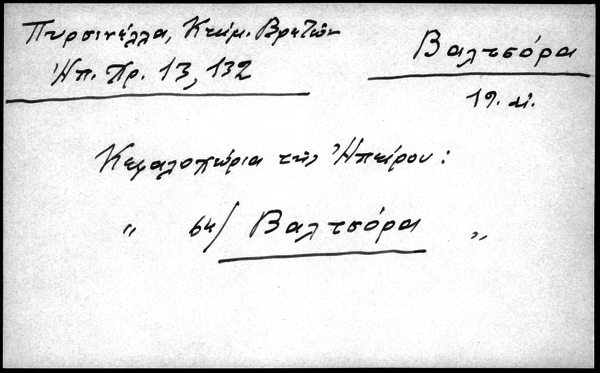 Πυρσινέλλα, Κτήμ. Βρετῶν
Ἠπ. Χρ. 13, 132
Βαλτσόρα
19. αἰ.
Κεφαλοχώρια τῆς Ἠπείρου:
“ 64/ Βαλτσόρα „